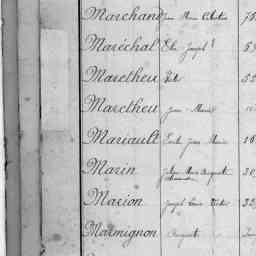 Marchand Jean Marie Célestin 75
Maréchal Elie Joseph 59
Maretheu 52
Maretheu Jean Marie
Mariault Emile Jean Marie 18
Marin Marie Auguste 30
Marion Joseph Louis Victor 32
Marmignon Auguste